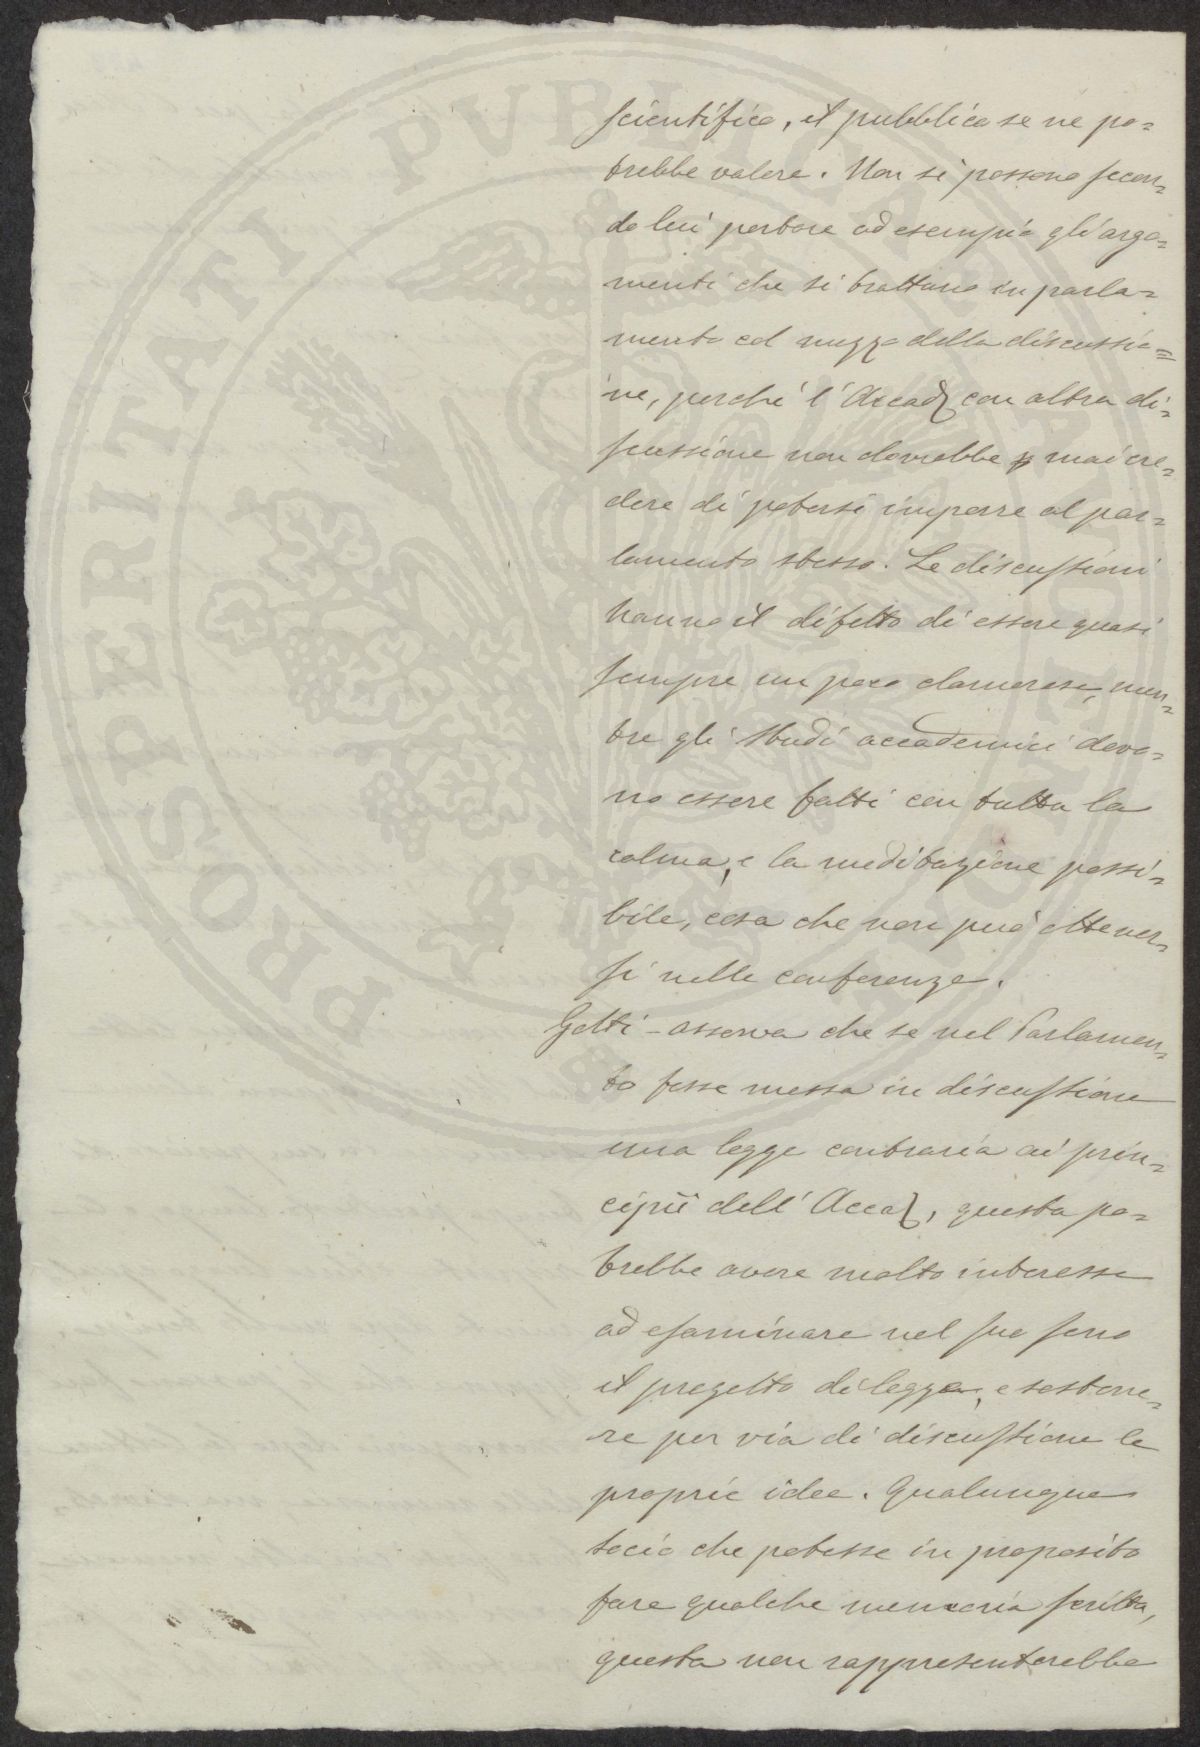 scientifico, il pubblico se ne po-
trebbe valere. Non si possono secon-
do lui portare ad esempio gli argo-
menti che si trattano in parla-
mento col mezzo della discussio-
ne, perché l'Accad. con altra di-
scussione non dovrebbe mai cre-
dere di potersi imporre al par-
lamento stesso. Le discussioni
hanno il difetto di essere quasi
sempre un poco clamorose, men-
tre gli studi accademici devo-
no essere fatti con tutta la
calma, e la meditazione possi-
bile, cosa che non può ottener-
si nelle conferenze.
Gotti - osserva che se nel Parlamen-
to fosse messa in discussione
una legge contraria ai prin-
cipii dell'Accad., questa po-
trebbe avere molto interesse
ad esaminare nel suo seno
il progetto di legge, e sostene-
re per via di discussione le
proprie idee. Qualunque
socio che potesse in proposito
fare qualche memoria scritta,
questa non rappresenterebbe
PROSPERITATI PVBLICAE